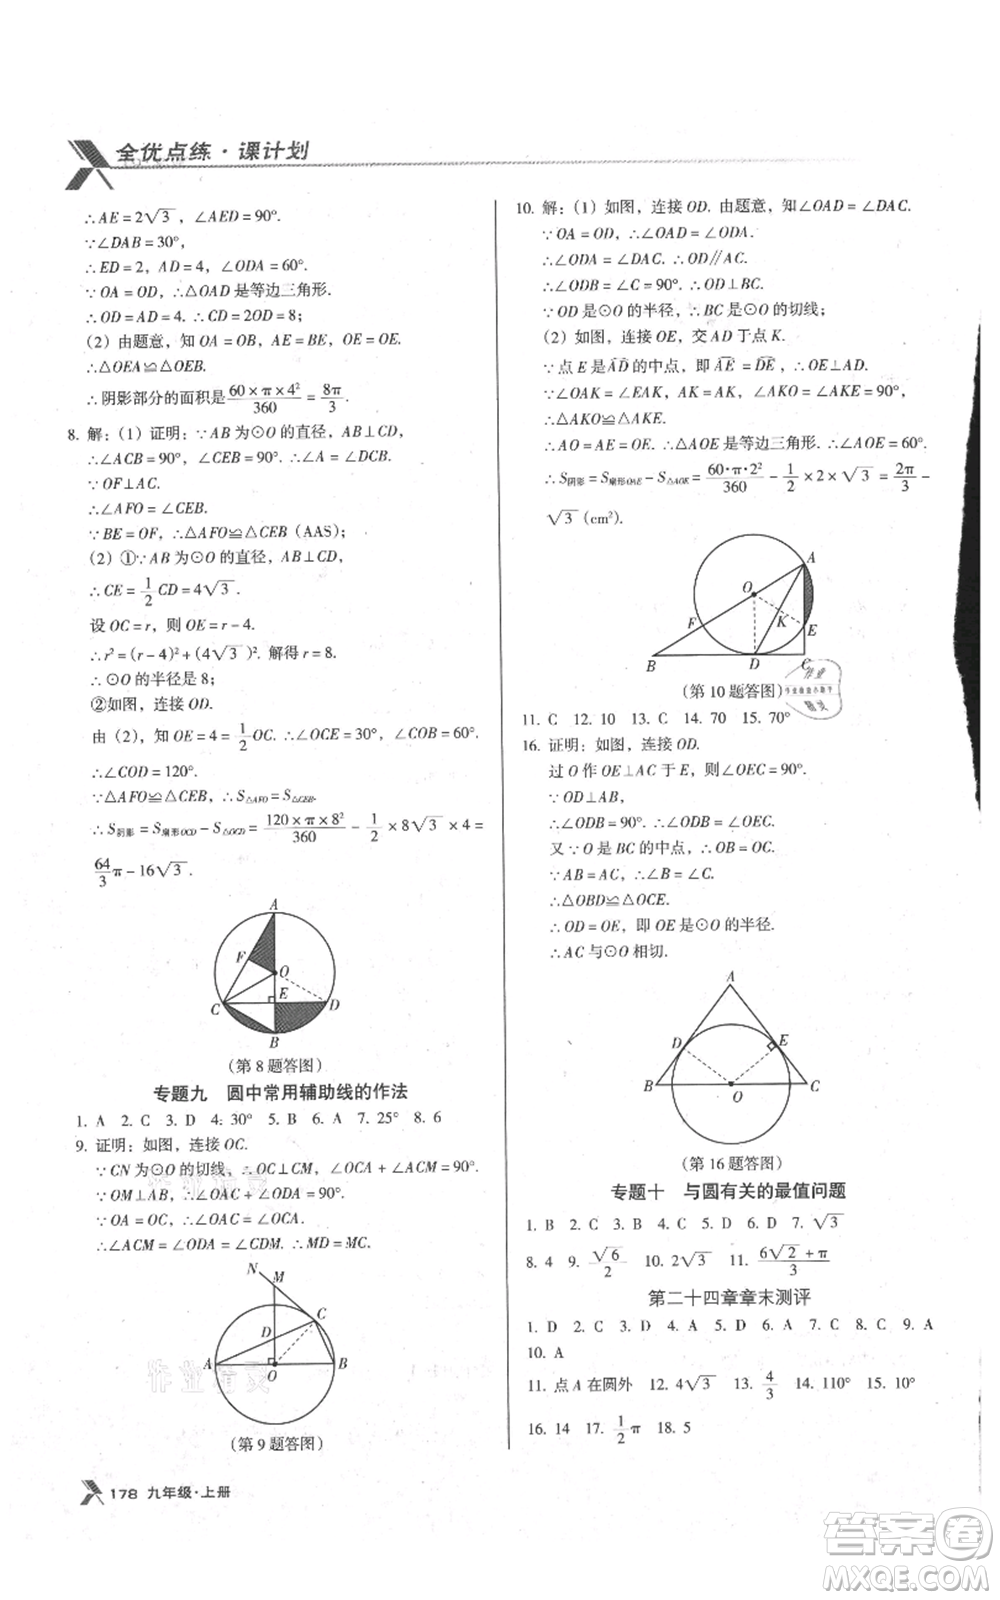 全优点练·课计划
∴AE=2√3，∠AED=90°.
∵∠DAB=30°，
∴ED=2，AD=4，∠ODA=60°.
∵OA=OD，∴△OAD是等边三角形.
∴OD=AD=4. ∴CD=2OD=8；
(2) 由题意，知OA=OB，AE=BE，OE=OE.
∴△OEA≌△OEB.
∴阴影部分的面积是60×π×4²/360=8π/3.
8. 解：(1) 证明：∵AB为⊙O的直径，AB⊥CD，
∴∠ACB=90°，∠CEB=90°. ∴∠A=∠DCB.
∵OF⊥AC.
∴∠AFO=∠CEB.
∵BE=OF，∴△AFO≌△CEB (AAS)；
(2) ①∵AB为⊙O的直径，AB⊥CD，
∴CE=1/2CD=4√3.
设OC=r，则OE=r-4.
∴r²=(r-4)²+(4√3)². 解得r=8.
∴⊙O的半径是8；
②如图，连接OD.
由(2)，知OE=4=1/2OC. ∴∠OCE=30°，∠COB=60°.
∴∠COD=120°.
∵△AFO≌△CEB，∴S△AFO=S△CEB.
∴S阴影=S扇形OCD-S△OCD=120×π×8²/360-1/2×8√3×4=
64/3π-16√3.
A
F
O
E
C
D
B
(第8题答图)
专题九 圆中常用辅助线的作法
1. A 2. C 3. D 4. 30° 5. B 6. A 7. 25° 8. 6
9. 证明：如图，连接OC.
∵CN为⊙O的切线，∴OC⊥CM，∠OCA+∠ACM=90°.
∵OM⊥AB，∴∠OAC+∠ODA=90°.
∵OA=OC，∴∠OAC=∠OCA.
∴∠ACM=∠ODA=∠CDM. ∴MD=MC.
N
M
C
D
A
O
B
(第9题答图)
178 九年级·上册
10. 解：(1) 如图，连接OD. 由题意，知∠OAD=∠DAC.
∵OA=OD，∴∠OAD=∠ODA.
∴∠ODA=∠DAC. ∴OD∥AC.
∴∠ODB=∠C=90°. ∴OD⊥BC.
∵OD是⊙O的半径，∴BC是⊙O的切线；
(2) 如图，连接OE，交AD于点K.
∵点E是A͡D的中点，即A͡E=D͡E，∴OE⊥AD.
∵∠OAK=∠EAK，AK=AK，∠AKO=∠AKE=90°，
∴△AKO≌△AKE.
∴AO=AE=OE. ∴△AOE是等边三角形. ∴∠AOE=60°.
∴S阴影=S扇形OAE-S△AOE=60·π·2²/360-1/2×2×√3=2π/3-
√3 (cm²).
A
O
F
K
E
B
D
C
(第10题答图)
11. C 12. 10 13. C 14. 70 15. 70°
16. 证明：如图，连接OD.
过O作OE⊥AC于E，则∠OEC=90°.
∵OD⊥AB，
∴∠ODB=90°. ∴∠ODB=∠OEC.
又∵O是BC的中点，∴OB=OC.
∵AB=AC，∴∠B=∠C.
∴△OBD≌△OCE.
∴OD=OE，即OE是⊙O的半径.
∴AC与⊙O相切.
A
D
E
B
O
C
(第16题答图)
专题十 与圆有关的最值问题
1. B 2. C 3. B 4. C 5. D 6. D 7. √3
8. 4 9. √6/2 10. 2√3 11. (6√2+π)/3
第二十四章章末测评
1. D 2. C 3. D 4. A 5. D 6. B 7. C 8. C 9. A
10. A
11. 点A在圆外 12. 4√3 13. 4/3 14. 110° 15. 10°
16. 14 17. 1/2π 18. 5
答案卷
MXQE.COM